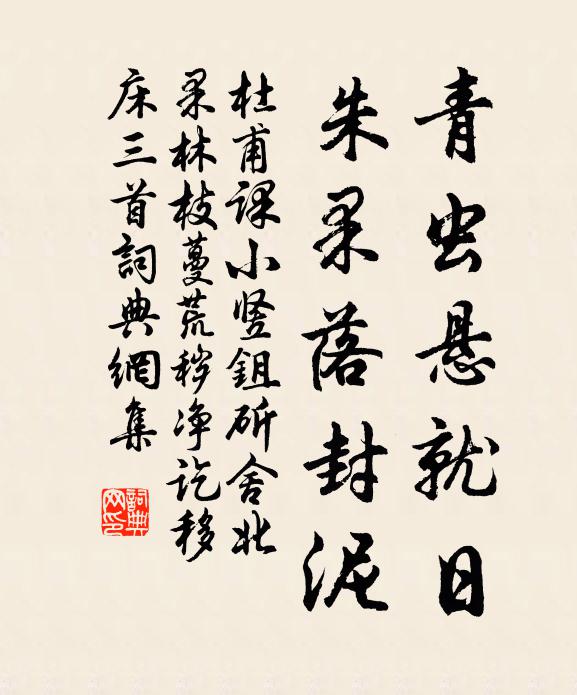 青虫悬就日
朱果落封泥
杜甫课小竖鉏斫舍北
果林枝蔓荒秽净讫移
床三首詞典網集
詞典网印